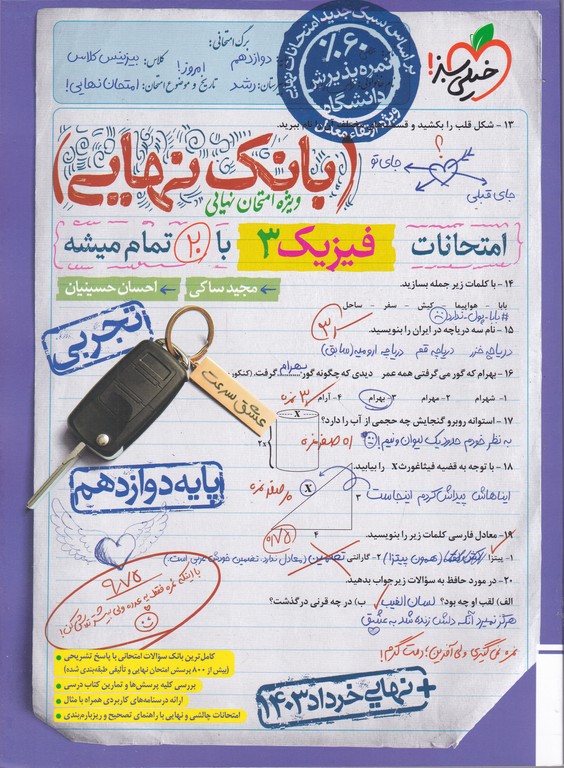 خیلی سبز!
بر اساس سبک جدید امتحانات نهایی
٪۶۰
نمره پذیرش
دانشگاه
ویژه ارتقاء معدل
برگ امتحانی:
دوازدهم
امروز!
کلاس: بیزینس کلاس
رشد
تاریخ و موضوع امتحان: امتحان نهایی!
۱۳ - شکل قلب را بکشید و
نام ببرید.
؟
جای تو
جای قبلی
(بانک نهایی)
ویژه امتحان نهایی
امتحانات فیزیک ۳ با ۲۰ تمام میشه
مجید ساکی
احسان حسینیان
تجربی
۱۴ - با کلمات زیر جمله بسازید.
بابا - هواپیما - کیش - سفر - ساحل
#بابا_پول_ندارد
۱۵ - نام سه دریاچه در ایران را بنویسید.
دریاچه خزر دریاچه قم دریاچه ارومیه (سابق)
۱۶ - بهرام که گور می گرفتی همه عمر دیدی که چگونه گور بهرام گرفت. (کنکور
۱- شهرام ۲- مهرام ۳- بهرام ۴- آرام
۱۷ - استوانه روبرو گنجایش چه حجمی از آب را دارد؟
به نظر خودم حدود یک لیوان و نیم!
x
۲x
۱۸ - با توجه به قضیه فیثاغورث X را بیابید.
ایناهاش پیداش کردم اینجاست
X
۳
۴
۰/۷۵
۱۹- معادل فارسی کلمات زیر را بنویسید.
۱- پیتزا (همون پیتزا) ۲- گارانتی تضمین (معادل ندارد. تضمین خودش عربی است.)
۲۰ - در مورد حافظ به سؤالات زیر جواب بدهید.
الف) لقب او چه بود؟ لسان الغیب ب) در چه قرنی در گذشت؟
هرگز نمیرد آنکه دلش زنده شد به عشق
نمره نمی‌گیری ولی آفرین؛ دمت گرم!!
عشق سرعت
پایه دوازدهم
۹/۷۵
کامل‌ترین بانک سؤالات امتحانی با پاسخ تشریحی
(بیش از ۸۰۰ پرسش امتحان نهایی و تألیفی طبقه‌بندی شده)
بررسی کلیه پرسش‌ها و تمارین کتاب درسی
ارائه درسنامه‌های کاربردی همراه با مثال
امتحانات چالشی و نهایی با راهنمای تصحیح و ریزبارم‌بندی
+ نهایی خرداد ۱۴۰۳